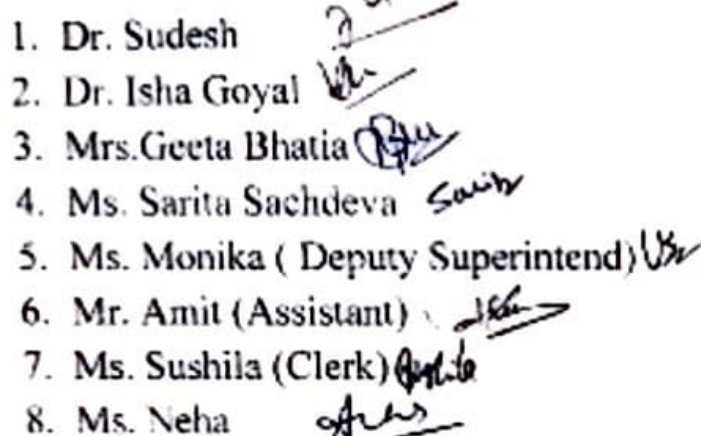 1. Dr. Sudesh
2. Dr. Isha Goyal
3. Mrs.Geeta Bhatia
4. Ms. Sarita Sachdeva Sarita
5. Ms. Monika ( Deputy Superintend)
6. Mr. Amit (Assistant)
7. Ms. Sushila (Clerk) Sushila
8. Ms. Neha